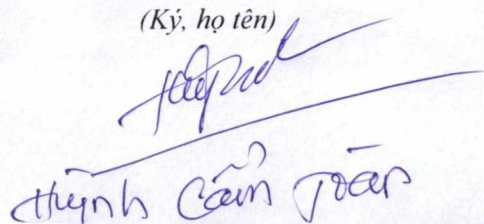 (Ký, họ tên)
Huỳnh Cẩm Toàn